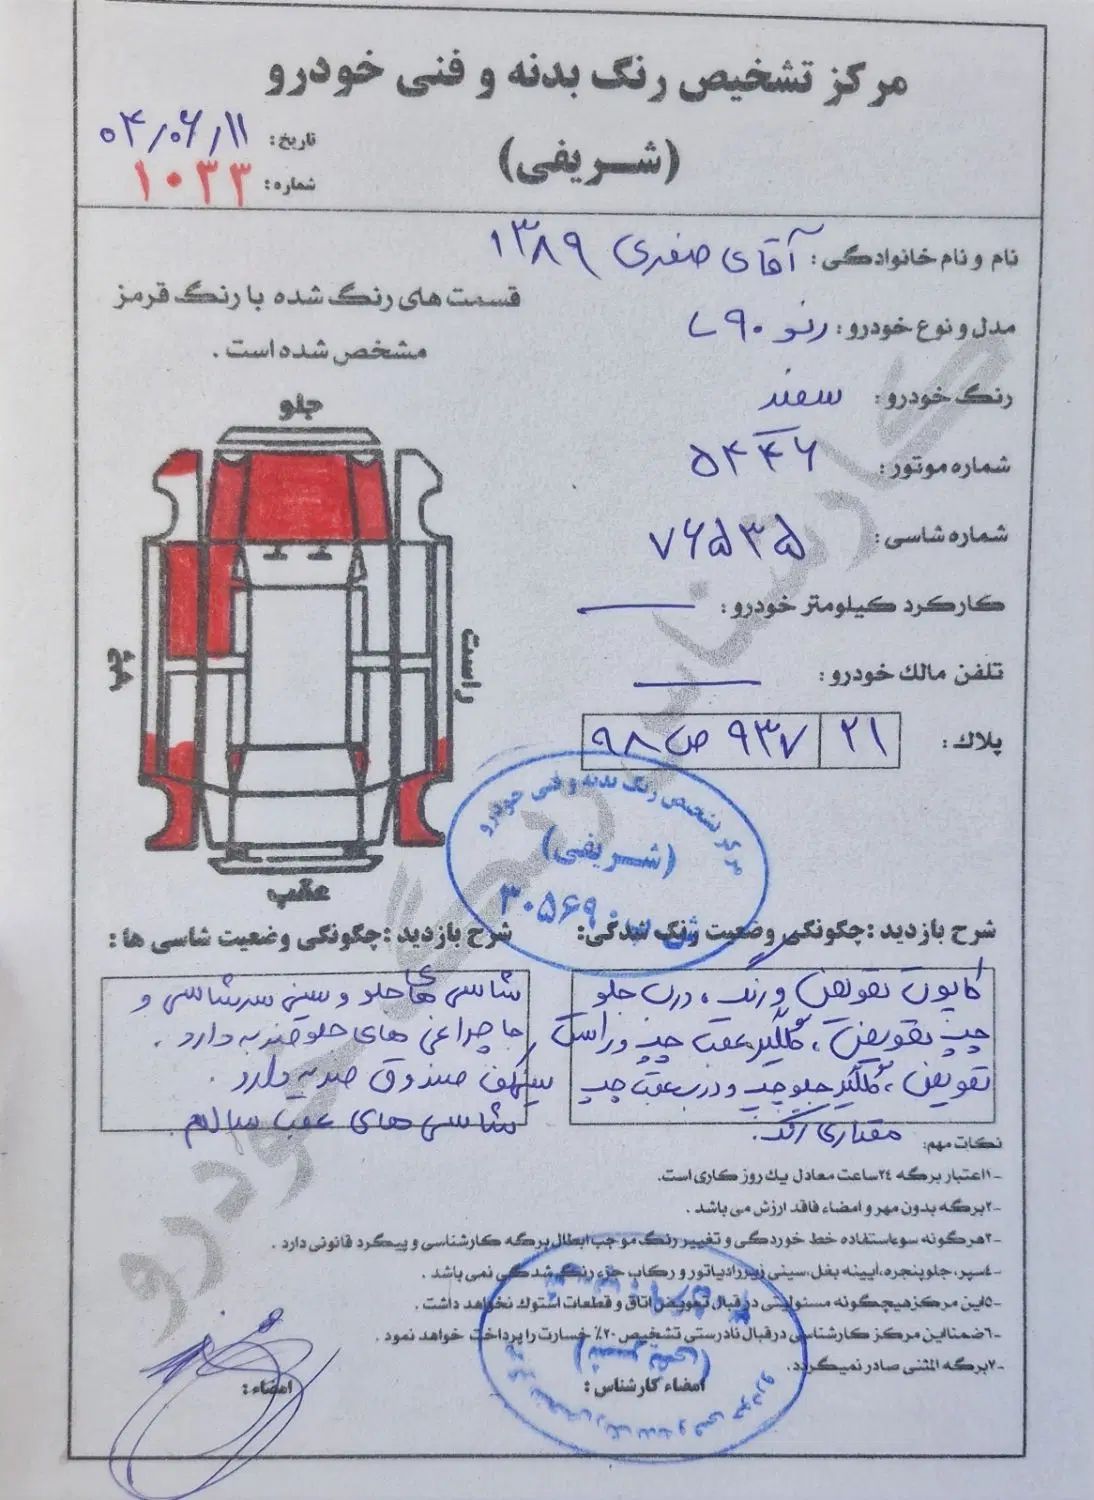 مرکز تشخیص رنگ بدنه و فنی خودرو
(شریفی)
تاریخ: ۰۴/۰۶/۱۱
شماره: ۱۰۳۳
نام و نام خانوادگی: آقای صفری ۱۳۸۹
قسمت های رنگ شده با رنگ قرمز
مشخص شده است.
مدل و نوع خودرو: رنو ل۹۰
رنگ خودرو: سفید
شماره موتور: ۵۴۴۶
شماره شاسی: ۷۶۵۳۵
کارکرد کیلومتر خودرو: ــ
تلفن مالک خودرو: ــ
پلاک: ۲۱ | ۹۳۷ ص ۹۸
جلو
چپ
راست
عقب
مرکز تشخیص رنگ بدنه و فنی خودرو
(شریفی)
۳۰۵۶۹
شرح بازدید: چگونگی وضعیت رنگ شدگی:
کاپوت تعویض و رنگ، درب جلو
چپ تعویض، گلگیر عقب چپ و راست
تعویض، گلگیر جلو چپ و درب عقب چپ
مقداری رنگ.
شرح بازدید: چگونگی وضعیت شاسی ها:
شاسی های جلو و سینی سرشاسی و
جا چراغی های جلو ضربه دارد.
سینی کف صندوق ضربه دارد.
شاسی های عقب سالم.
نکات مهم:
۱-اعتبار برگه ۲۴ساعت معادل یک روز کاری است.
۲-برگه بدون مهر و امضاء فاقد ارزش می باشد.
۳-هرگونه سوءاستفاده خط خوردگی و تغییر رنگ موجب ابطال برگه کارشناسی و پیگرد قانونی دارد.
۴-سپر، جلوپنجره، آیینه بغل، سینی زیر رادیاتور و رکاب جزء رنگ شدگی نمی باشد.
۵-این مرکز هیچگونه مسئولیتی در قبال تعویض اتاق و قطعات استوک نخواهد داشت.
۶-ضمنا این مرکز کارشناسی در قبال نادرستی تشخیص ۲۰٪ خسارت را پرداخت خواهد نمود.
۷-برگه المثنی صادر نمیگردد.
امضاء کارشناس:
امضاء:
(شریفی)
کارشناسی رنگ خودرو